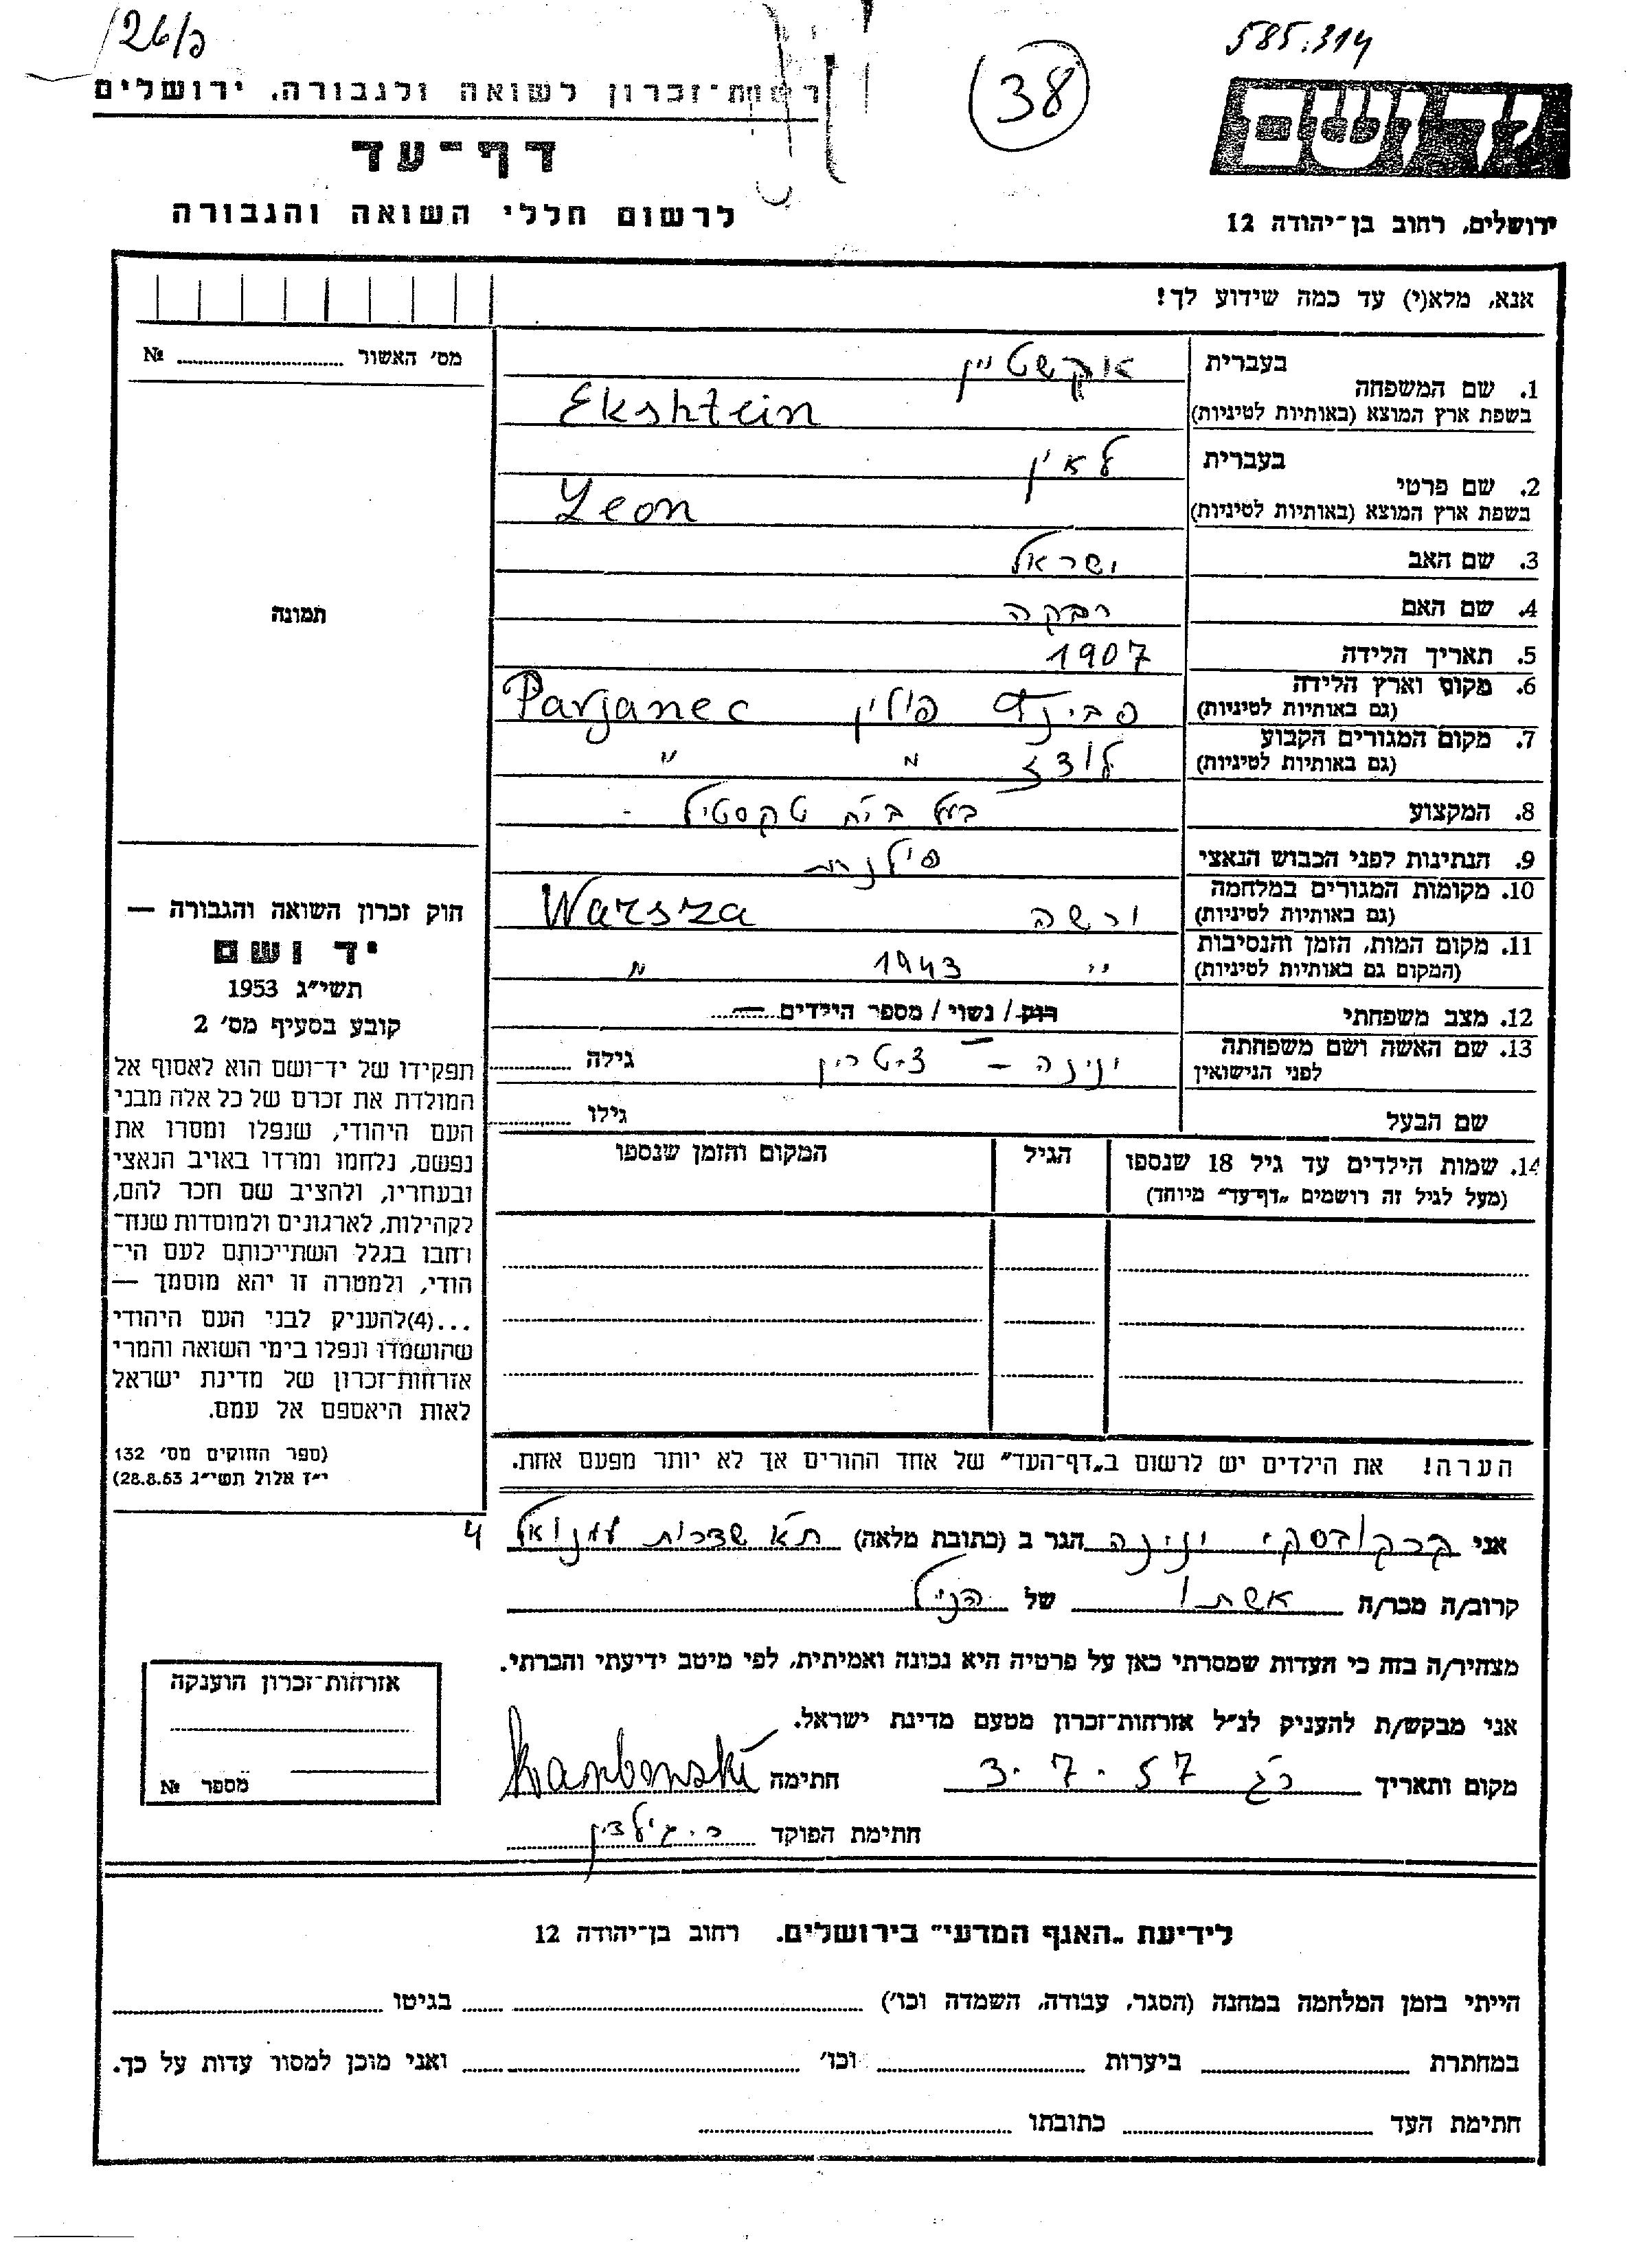 126/פ
38
585.314
רשות־זכרון לשואה ולגבורה, ירושלים
דף־עד
לרשום חללי השואה והגבורה
יד ושם
ירושלים, רחוב בן־יהודה 12
אנא, מלא(י) עד כמה שידוע לך!
מס׳ האשור № 
תמונה
בעברית אקשטיין
1. שם המשפחה
בשפת ארץ המוצא (באותיות לטיניות) Ekshtein
בעברית לאון
2. שם פרטי
בשפת ארץ המוצא (באותיות לטיניות) Leon
3. שם האב ישראל
4. שם האם רבקה
5. תאריך הלידה 1907
6. מקום וארץ הלידה
(גם באותיות לטיניות) פולין Parjanec
7. מקום המגורים הקבוע
(גם באותיות לטיניות) לודז " "
8. המקצוע בעל בי״ח טקסטיל -
9. הנתינות לפני הכבוש הנאצי פולנית
10. מקומות המגורים במלחמה
(גם באותיות לטיניות) ורשה Warsza
11. מקום המות, הזמן והנסיבות
(המקום גם באותיות לטיניות) " 1943 "
12. מצב משפחתי רווק / נשוי / מספר הילדים —
13. שם האשה ושם משפחתה
לפני הנישואין ינינה – גילה
שם הבעל גילו
14. שמות הילדים עד גיל 18 שנספו הגיל המקום והזמן שנספו
(מעל לגיל זה רושמים „דף־עד״ מיוחד)
הערה! את הילדים יש לרשום ב„דף־העד״ של אחד ההורים אך לא יותר מפעם אחת.
חוק זכרון השואה והגבורה —
יד ושם
תשי״ג 1953
קובע בסעיף מס׳ 2
תפקידו של יד־ושם הוא לאסוף אל
המולדת את זכרם של כל אלה מבני
העם היהודי, שנפלו ומסרו את
נפשם, נלחמו ומרדו באויב הנאצי
ובעוזריו, ולהציב שם וזכר להם,
לקהילות, לארגונים ולמוסדות שנח־
רבו בגלל השתייכותם לעם הי־
הודי, ולמטרה זו יהא מוסמך —
...(4)להעניק לבני העם היהודי
שהושמדו ונפלו בימי השואה והמרי
אזרחות־זכרון של מדינת ישראל
לאות היאספם אל עמם.
(ספר החוקים מס׳ 132
י״ז אלול תשי״ג 28.8.53)
אני קרקובסקי ינינה הגר ב (כתובת מלאה) ת״א שדרות עמנואל 4
קרוב/ה מכר/ה אשתו של הנ״ל
מצהיר/ה בזה כי העדות שמסרתי כאן על פרטיה היא נכונה ואמיתית, לפי מיטב ידיעתי והכרתי.
אני מבקש/ת להעניק לנ״ל אזרחות־זכרון מטעם מדינת ישראל.
מקום ותאריך רג 3.7.57 חתימה
חתימת הפוקד
אזרחות־זכרון הוענקה
מספר №
לידיעת „האגף המדעי״ בירושלים. רחוב בן־יהודה 12
הייתי בזמן המלחמה במחנה (הסגר, עבודה, השמדה וכו׳) בגיטו
במחתרת ביערות וכו׳ ואני מוכן למסור עדות על כך.
חתימת העד כתובתו